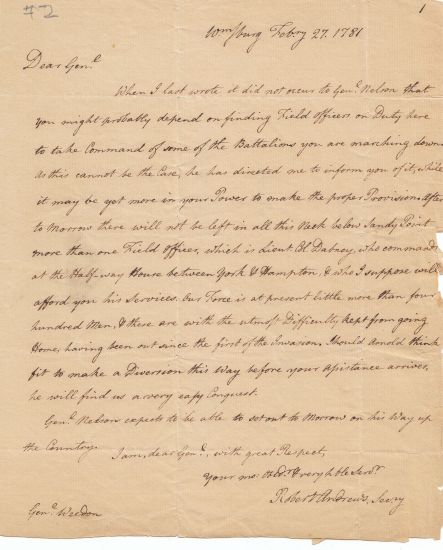 #2
1
Wmsburg Febry 27. 1781
Dear Genl.
When I last wrote it did not occur to Genl. Nelson that
you might probably depend on finding Field officers on Duty here
to take Command of some of the Battalions you are marching down.
As this cannot be the Case, he has directed me to inform you of it, while
it may be yet more in your Power to make the proper Provision. After
to Morrow there will not be left in all this Neck below Sandy Point
more than one Field officer, which is Lieut Col Dabney, who commands
at the Half way House between York & Hampton, & who I suppose will
afford you his Services. our Force is at present little more than four
hundred Men, & these are with the utmost Difficulty kept from going
Home, having been out since the first of the Invasion. Should Arnold think
fit to make a Diversion this Way before your Assistance arrives,
he will find us a very easy Conquest.
Genl. Nelson expects to be able to set out to Morrow on his Way up
the Country. I am, dear Genl., with great Respect,
Your mo: Obdt & very hble Servt
Robert Andrews, Secry
Genl. Weedon